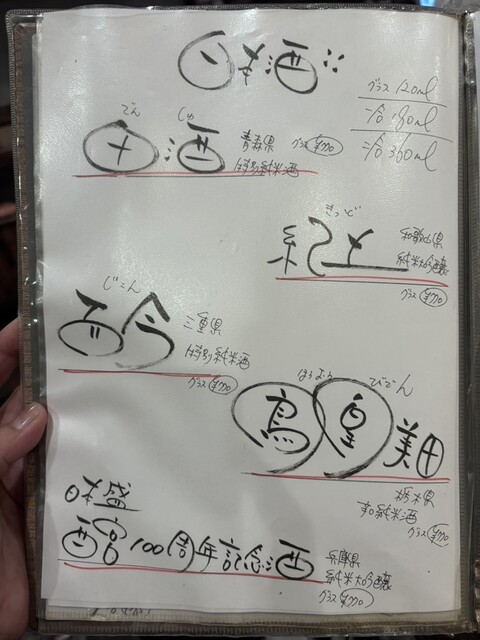 日本酒
グラス 120ml
冷 180ml
冷 360ml
でん しゅ
田酒
青森県 グラス ¥770
特別純米酒
きっど
紀土
和歌山県
純米大吟醸
グラス ¥770
じこん
而今
三重県
特別純米酒
グラス ¥770
ほうおう びでん
鳳凰美田
栃木県
純米酒
グラス ¥770
日本盛
100周年記念酒
兵庫県
純米大吟醸
グラス ¥770